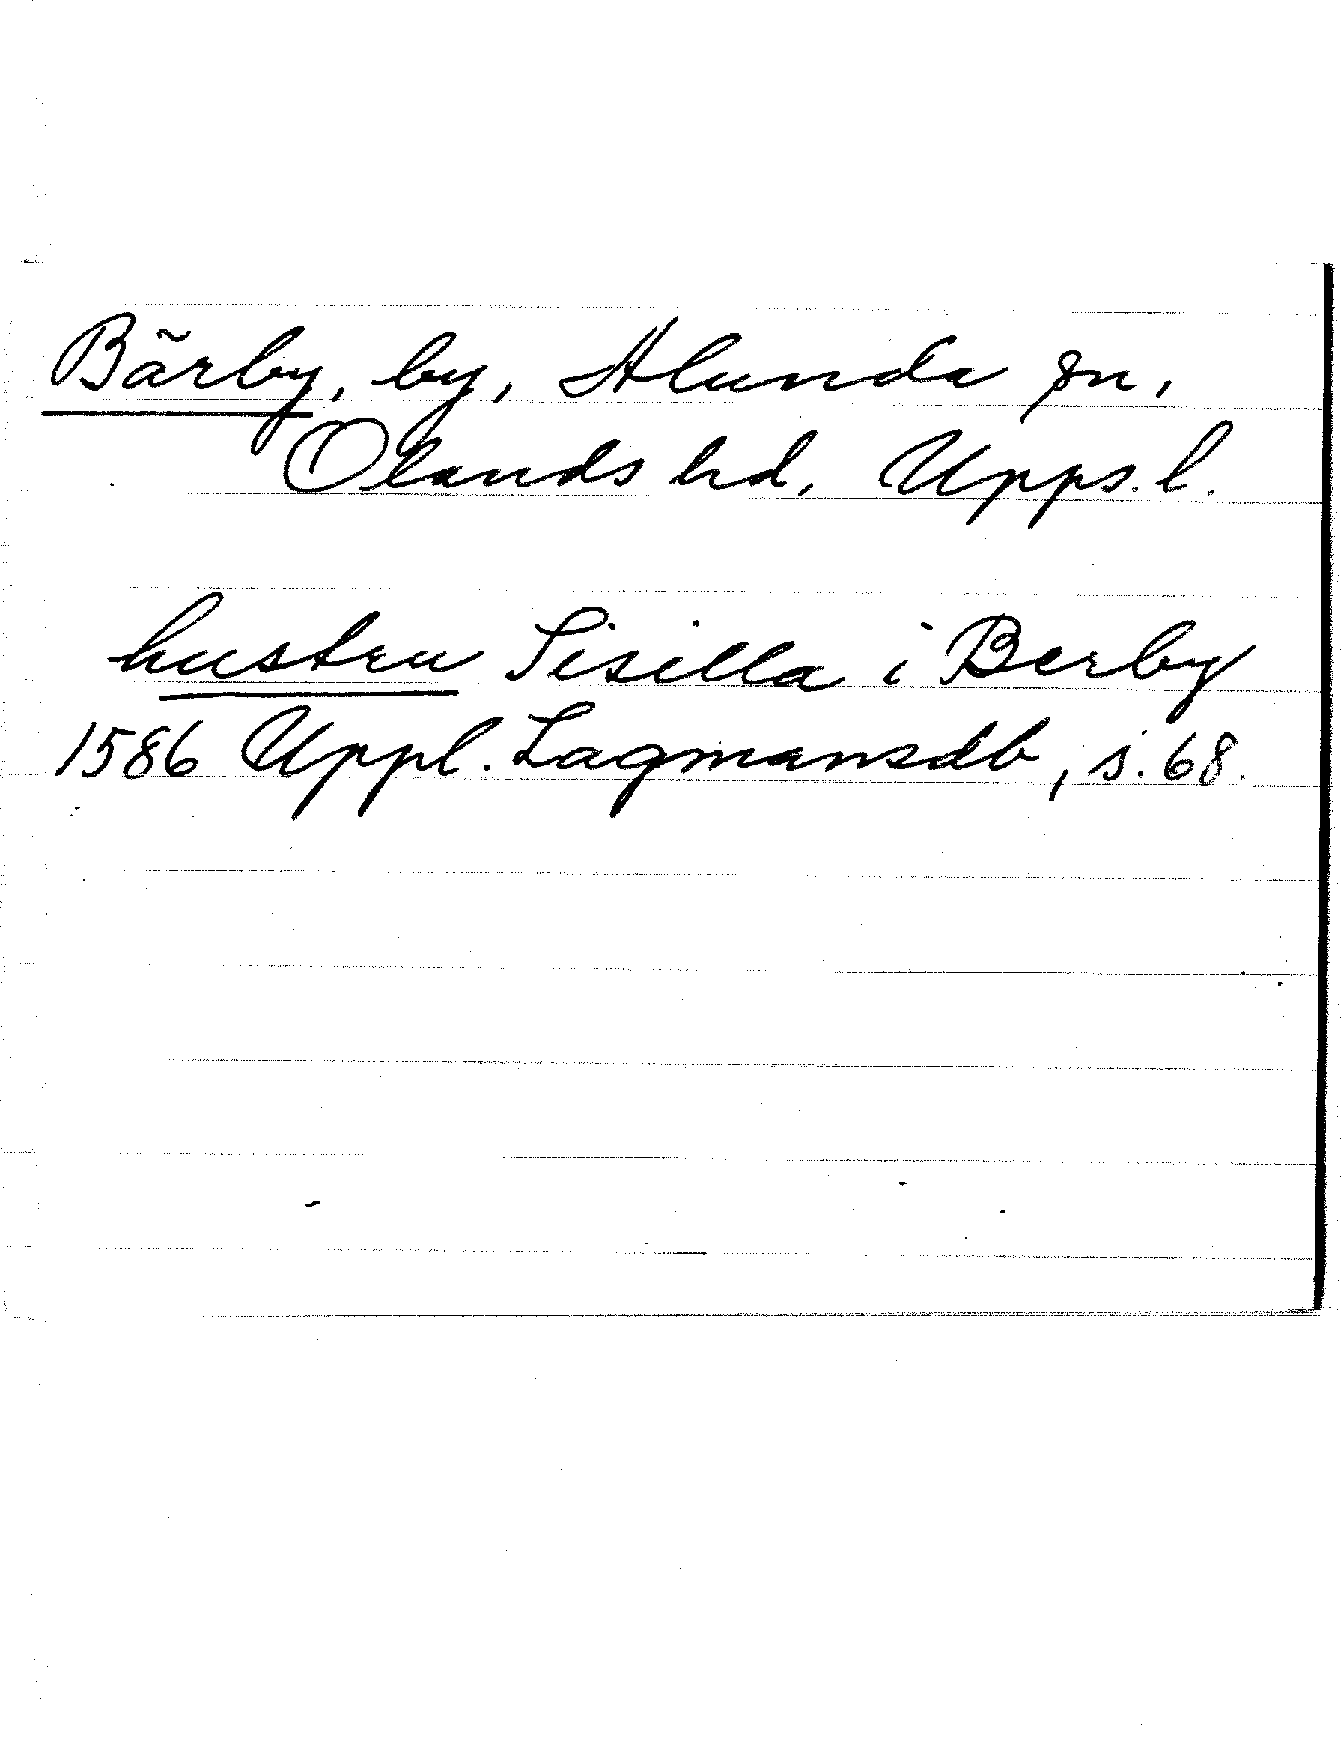 Bärby, by, Alunda sn,
Olands hd, Upps. l.
hustru Sisilla i Berby
1586 Uppl. Lagmansdb, s. 68.